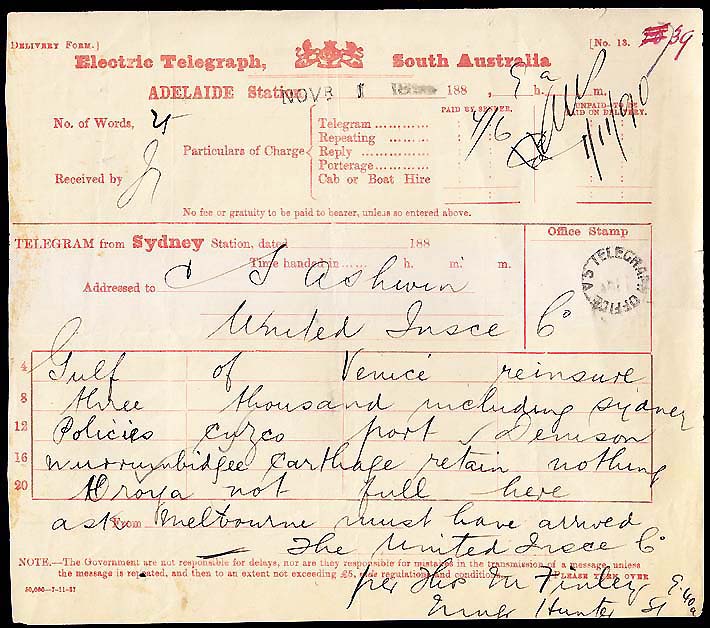 [DELIVERY FORM.]
[No. 13. 39
Electric Telegraph, South Australia
ADELAIDE Station, NOVR 1 188 , 9 h. a m.
No. of Words, 25
Received by
Particulars of Charge
PAID BY SENDER.
UNPAID—TO BE PAID ON DELIVERY.
Telegram ............ 4/6
Repeating ............
Reply ............
Porterage ............
Cab or Boat Hire
1/11/90
No fee or gratuity to be paid to bearer, unless so entered above.
TELEGRAM from Sydney Station, dated 188
Time handed in ...... h. m. m.
Office Stamp
TELEGRAPH OFFICE S.A.
Addressed to J Ashwin
United Insce Co
4 Gulf of Venice reinsure
8 three thousand including sydney
12 Policies cuzco port Denison
16 murrumbidgee Carthage retain nothing
20 Oroya not full here
From ask Melbourne must have arrived
The United Insce Co
NOTE.—The Government are not responsible for delays, nor are they responsible for mistakes in the transmission of a message, unless
the message is repeated, and then to an extent not exceeding £5, vide regulations and conditions. PLEASE TURN OVER
50,000—7-11-87
per Thos M Tinley
Hunter St
9.40a